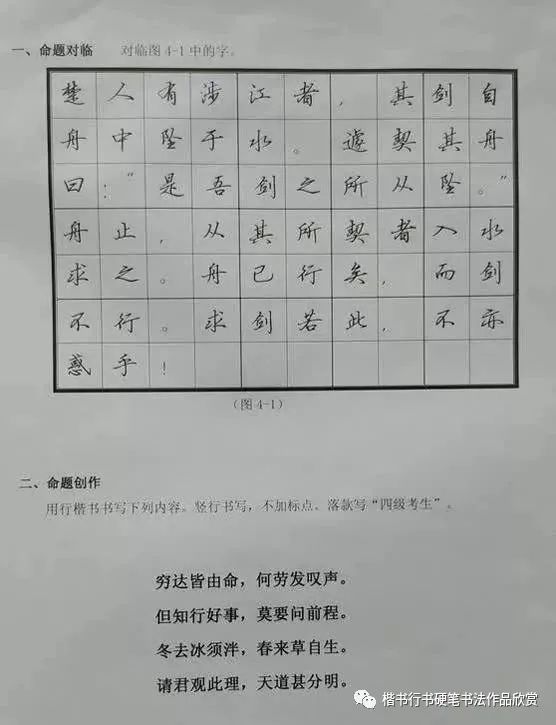 一、命题对临　　对临图4-1中的字。
楚人有涉江者，其剑自
舟中坠于水。遽契其舟
曰：“是吾剑之所从坠。”
舟止，从其所契者入水
求之。舟已行矣，而剑
不行。求剑若此，不亦
惑乎！
（图4-1）
二、命题创作
用行楷书书写下列内容。竖行书写，不加标点、落款写“四级考生”。
穷达皆由命，何劳发叹声。
但知行好事，莫要问前程。
冬去冰须泮，春来草自生。
请君观此理，天道甚分明。
楷书行书硬笔书法作品欣赏